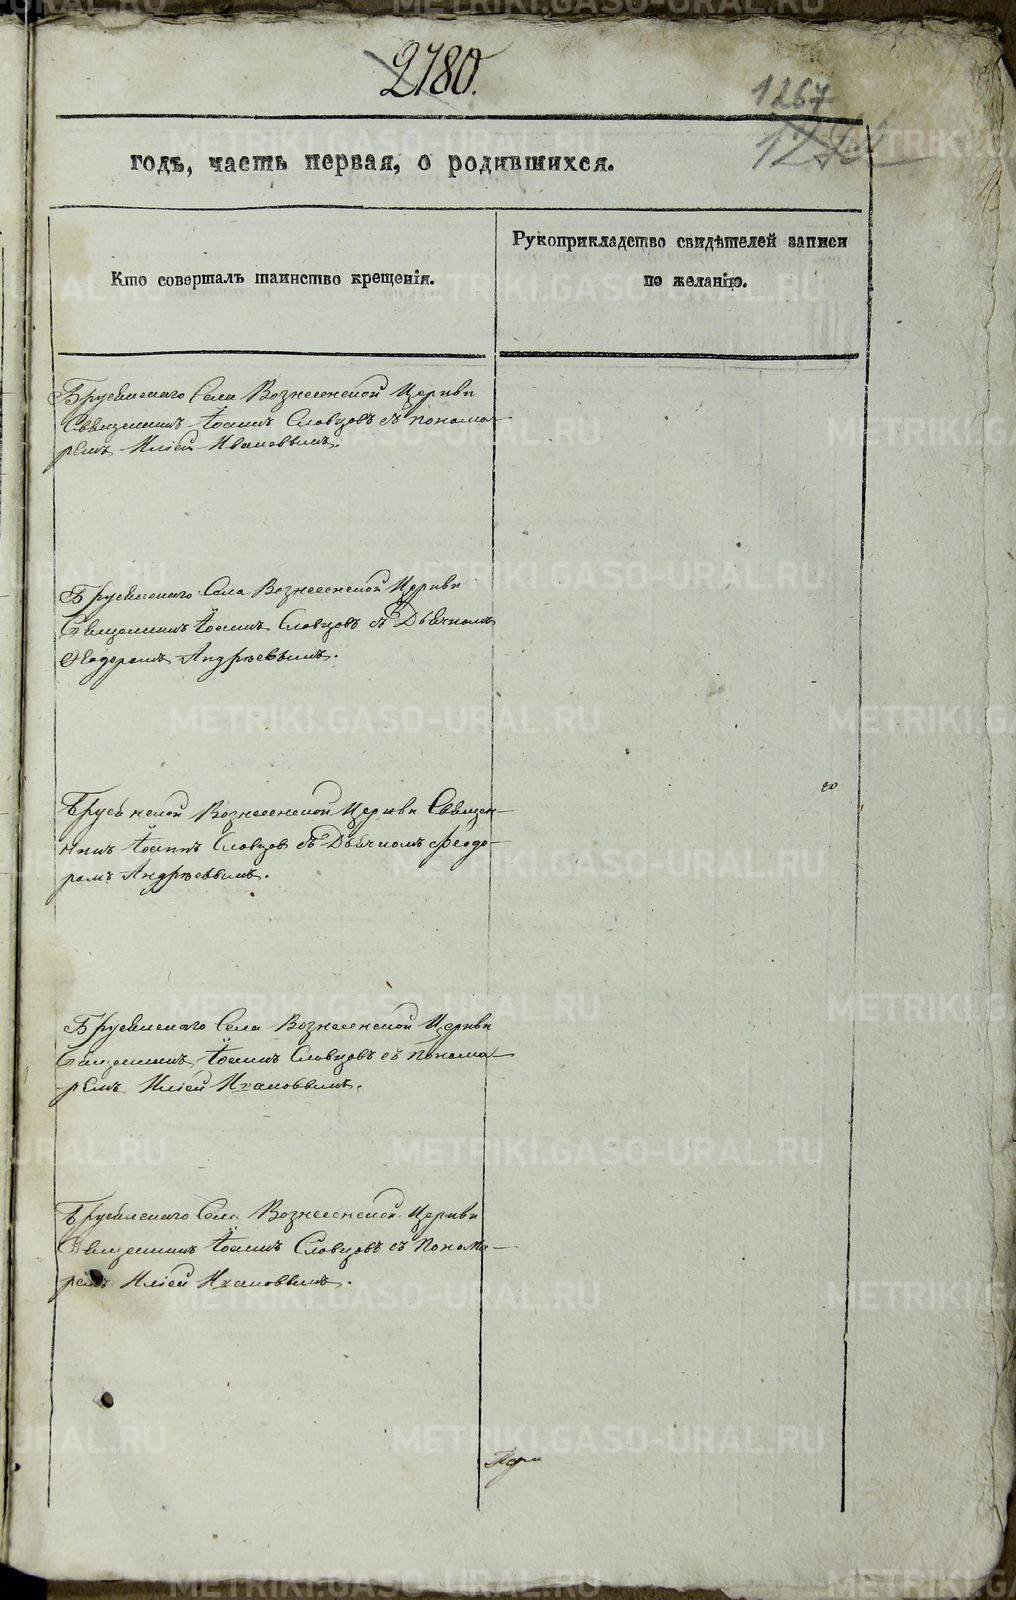 2780.
1267
годъ, часть первая, о родившихся.
Кто совершалъ таинство крещенія.
Рукоприкладство свидѣтелей записи
по желанію.
Брусянскаго Села Вознесенской Церкви
Священникъ Іоаннъ Словцовъ съ понома-
ремъ Иліей Ивановымъ.
Брусянскаго Села Вознесенской Церкви
Священникъ Іоаннъ Словцовъ съ Дьячкомъ
Ѳеодоромъ Андреевымъ.
Брусянской Вознесенской Церкви Священ-
никъ Іоаннъ Словцов съ Дьячкомъ Феодо-
ромъ Андреевымъ.
Брусянскаго Села Вознесенской Церкви
Священникъ Іоаннъ Словцовъ съ понома-
ремъ Иліей Ивановымъ.
Брусянскаго Села Вознесенской Церкви
Священникъ Іоаннъ Словцовъ съ Понома-
ремъ Иліей Ивановымъ.
METRIKI.GASO-URAL.RU